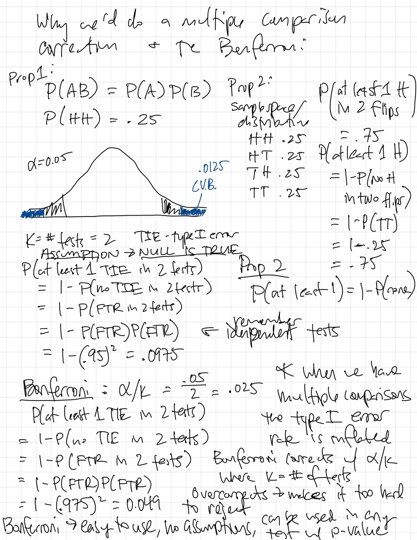 Why we'd do a multiple comparison
correction & the Bonferroni
Prop 1:
P(AB) = P(A) P(B)
P(HH) = .25
Prop 2:
sample space/
distribution
HH .25
HT .25
TH .25
TT .25
P(at least 1 H
in 2 flips)
= .75
P(at least 1 H)
= 1-P(no H
in two flips)
= 1-P(TT)
= 1-.25
= .75
α=0.05
.0125
C.V.B.
K = # tests = 2 TIE - type I error
Assumption → NULL IS TRUE
P(at least 1 TIE in 2 tests)
= 1 - P(no TIE in 2 tests)
= 1 - P(FTR in 2 tests)
= 1 - P(FTR)P(FTR) ← remember
independent tests
= 1-(.95)² = .0975
Prop 2
P(at least 1) = 1-P(none)
Bonferroni : α/K = .05/2 = .025
P(at least 1 TIE in 2 tests)
= 1 - P(no TIE in 2 tests)
= 1 - P(FTR in 2 tests)
= 1 - P(FTR)P(FTR)
= 1-(.975)² = 0.049
* when we have
multiple comparisons
the type I error
rate is inflated
Bonferroni corrects w/ α/K
where K = # of tests
overcorrects → makes it too hard
to reject
Bonferroni → easy to use, no assumptions, can be used in any
test w/ p-value